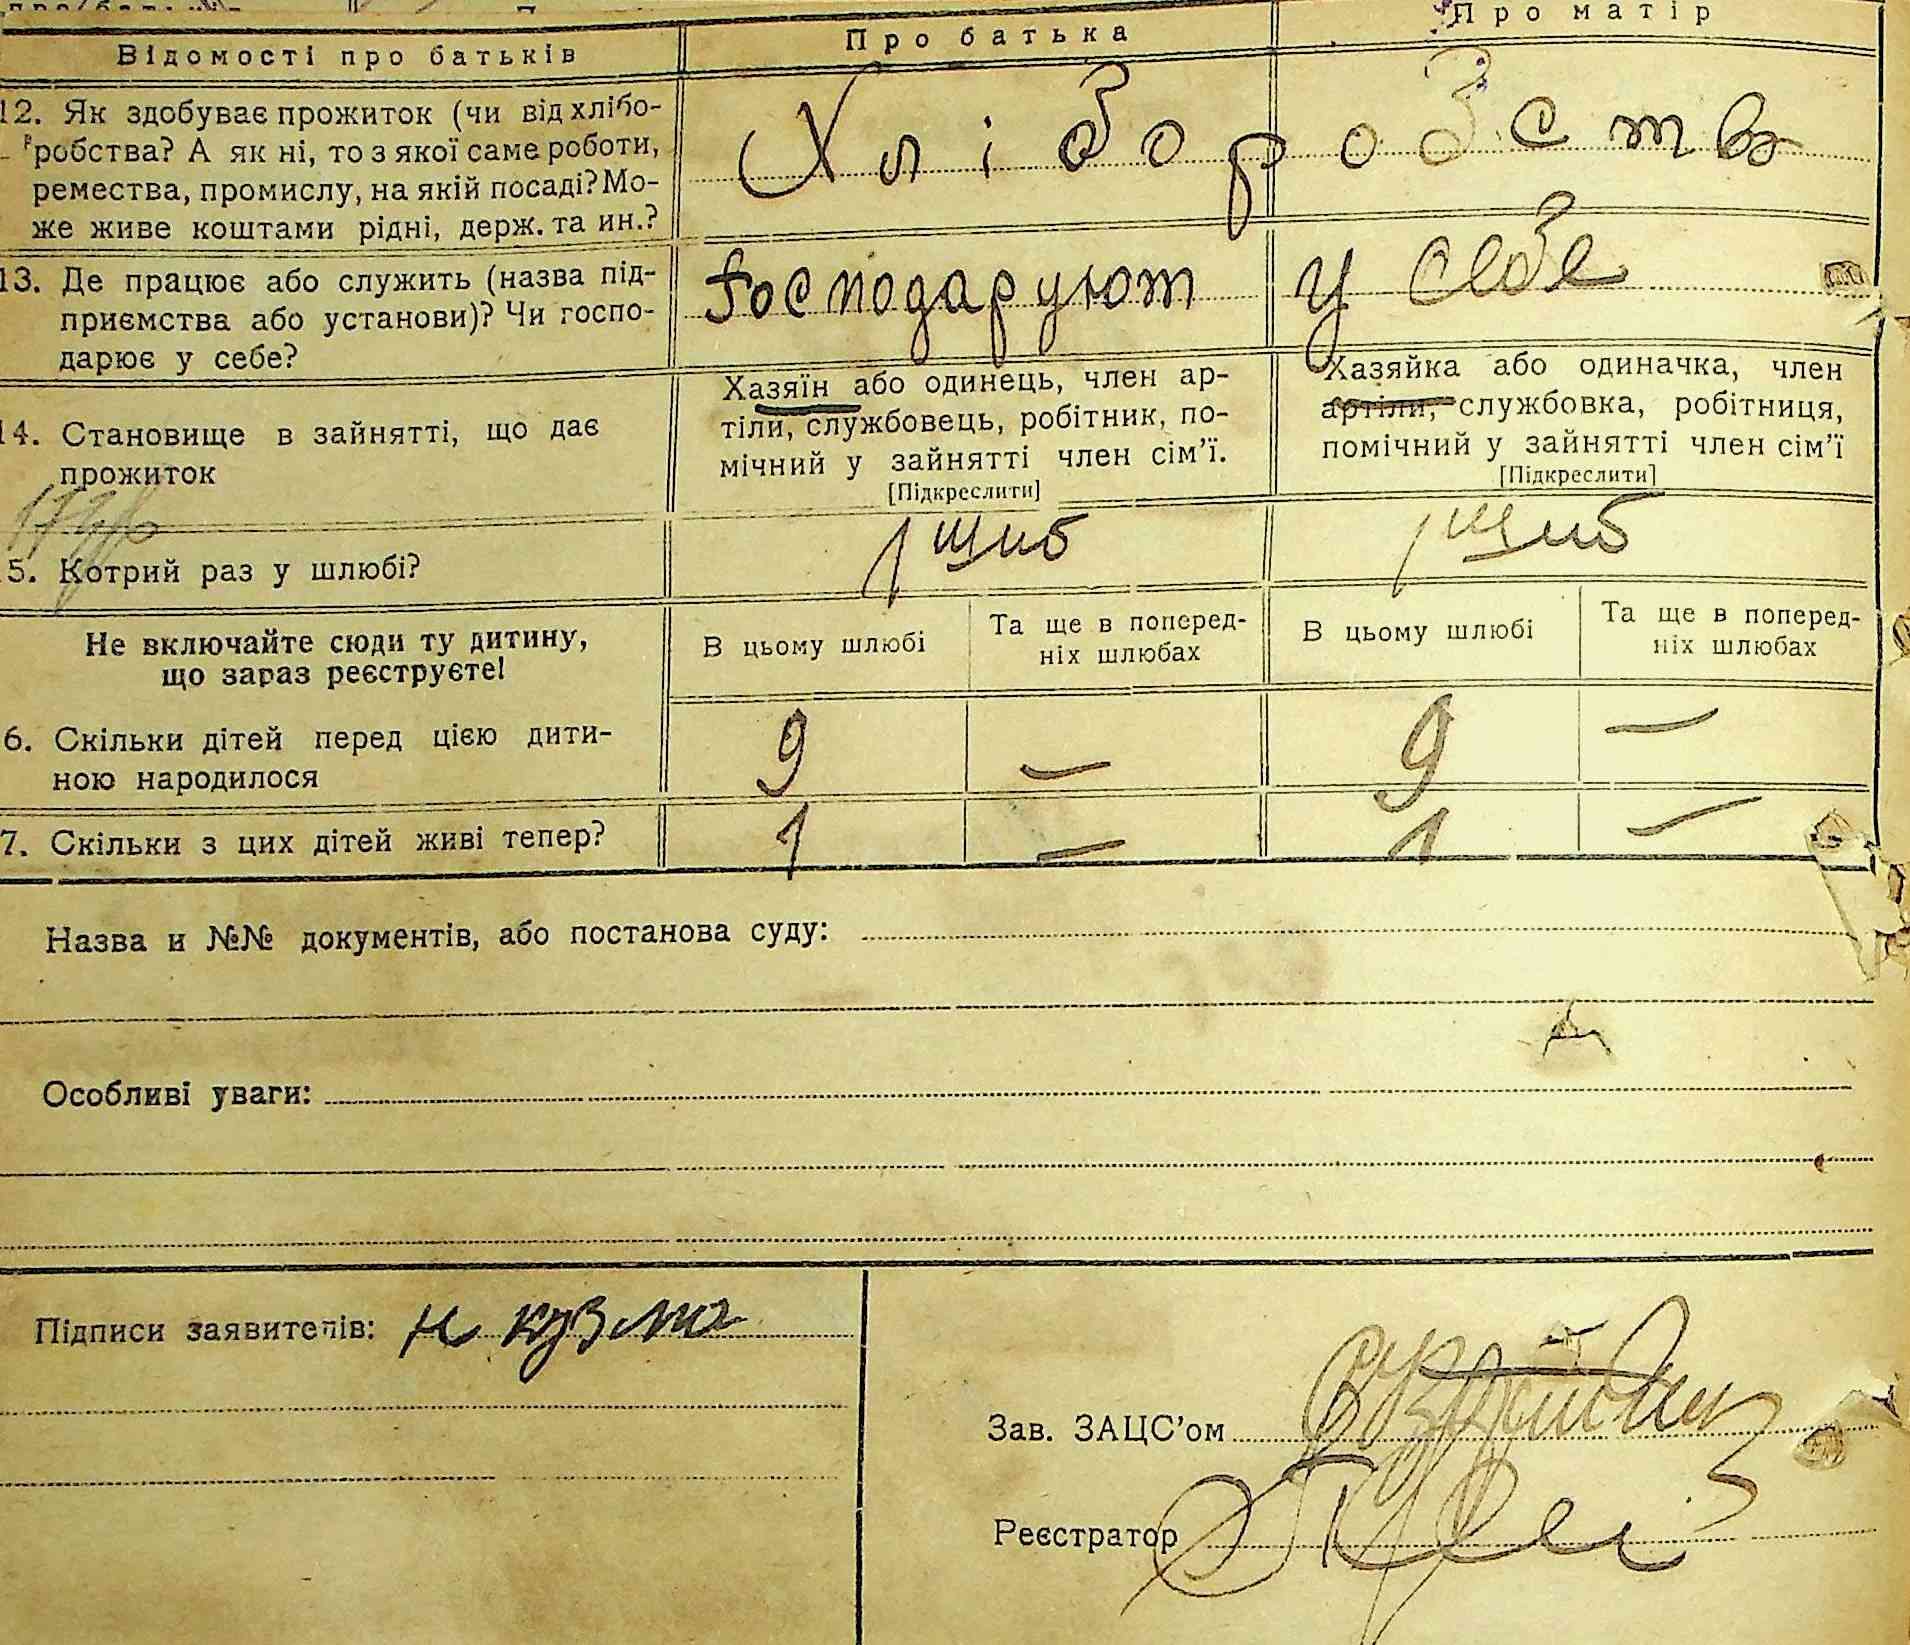 Відомості про батьків
Про батька
Про матір
12. Як здобуває прожиток (чи від хлібо-
робства? А як ні, то з якої саме роботи,
ремества, промислу, на якій посаді? Мо-
же живе коштами рідні, держ. та ин.?
Хліборобств
13. Де працює або служить (назва під-
приємства або установи)? Чи госпо-
дарює у себе?
Господаруют у себе
14. Становище в зайнятті, що дає
прожиток
Хазяїн або одинець, член ар-
тіли, службовець, робітник, по-
мічний у зайнятті член сім'ї.
[Підкреслити]
Хазяйка або одиначка, член
артіли, службовка, робітниця,
помічний у зайнятті член сім'ї
[Підкреслити]
5. Котрий раз у шлюбі?
1 шлиб
1 шлиб
Не включайте сюди ту дитину,
що зараз реєструєте!
В цьому шлюбі
Та ще в поперед-
ніх шлюбах
В цьому шлюбі
Та ще в поперед-
ніх шлюбах
6. Скільки дітей перед цією дити-
ною народилося
9 — 9 —
7. Скільки з цих дітей живі тепер?
1 — 1 —
Назва и №№ документів, або постанова суду:
Особливі уваги:
Підписи заявителів: Н кузма
Зав. ЗАЦС'ом
Реєстратор